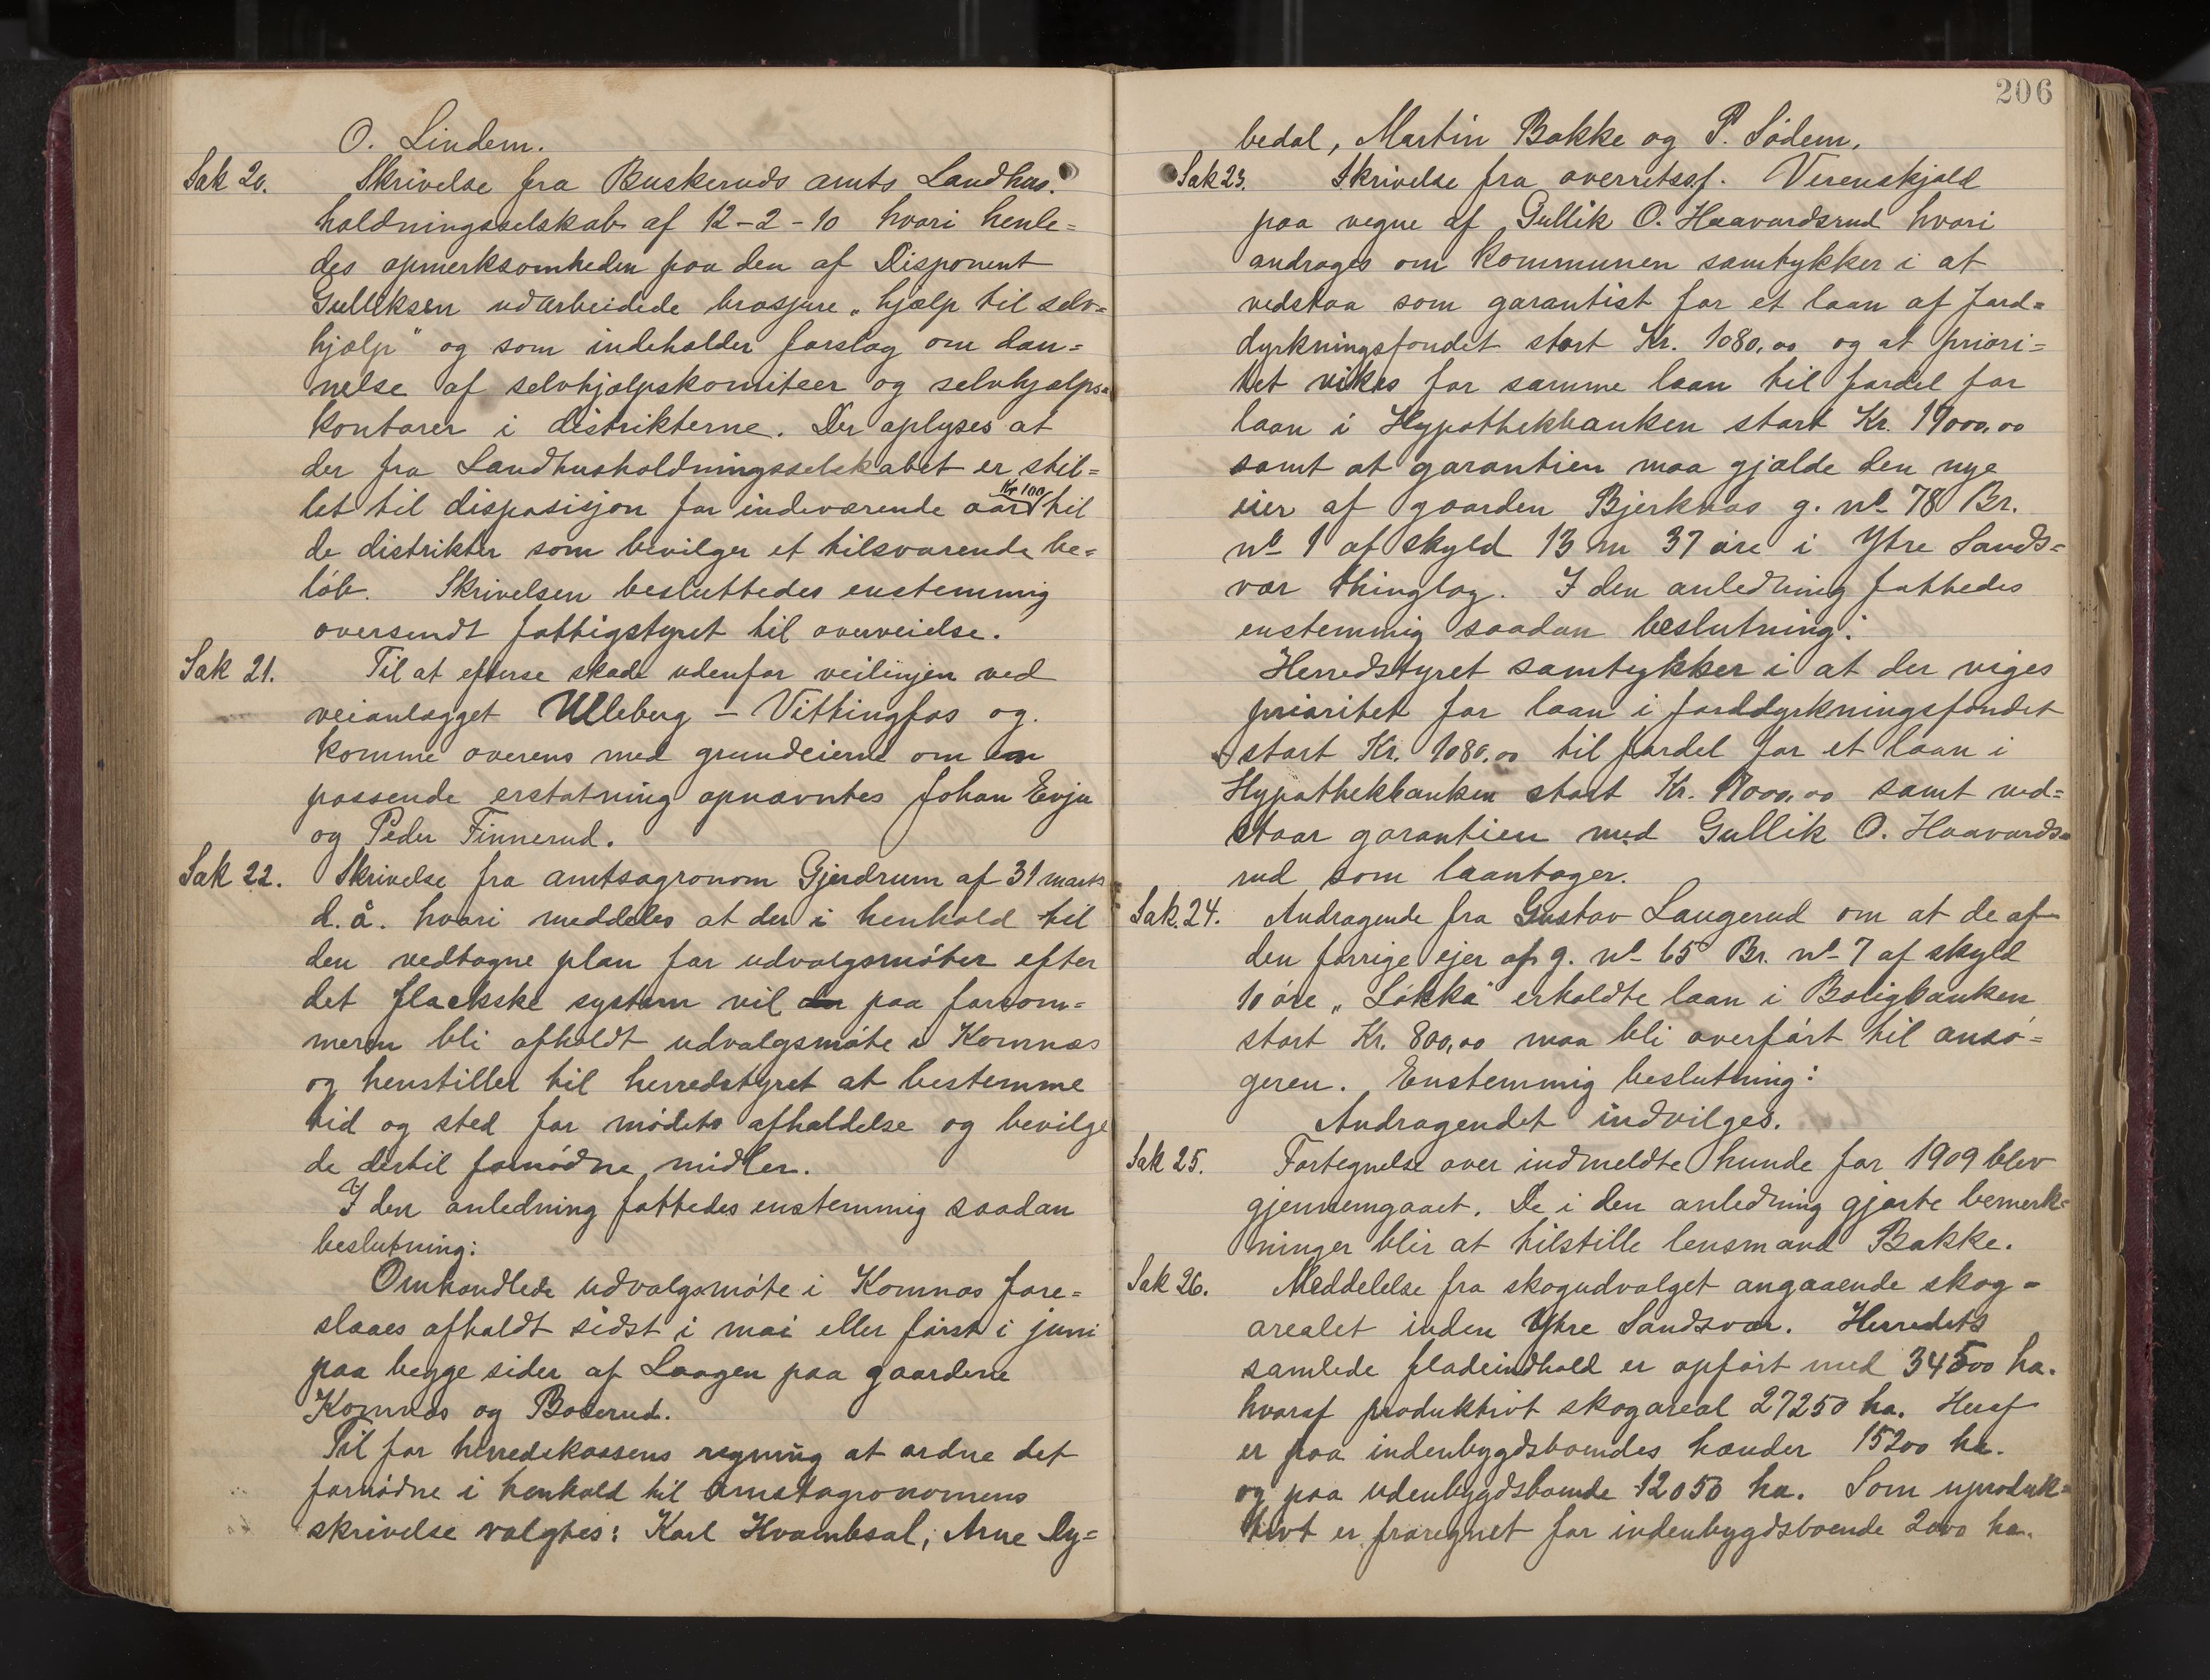 O. Lindem.
Sak 20. Skrivelse fra Buskeruds amts Landhus-
holdningsselskab af 12-2-10 hvori henle=
des opmerksomheden paa den af Disponent
Gulliksen udarbeidede brosjure „hjælp til selv=
hjælp" og som indeholder forslag om dan=
nelse af selvhjælpskomiteer og selvhjælps=
kontorer i distrikterne. Der oplyses at
der fra Landhusholdningsselskabet er stil=
let til disposisjon for indeværende aar Kr 100 til
de distrikter som bevilger et tilsvarende be=
løb. Skrivelsen besluttedes enstemmig
oversendt fattigstyret til overveielse.
Sak 21. Til at efterse skade udenfor veilinjen ved
veianlægget Ulleberg – Vittingfos og
komme overens med grundeierne om en
passende erstatning opnævntes Johan Evju
og Peder Finnerud.
Sak 22. Skrivelse fra amtsagronom Gjerdrum af 31 marts
d. å. hvori meddeles at der i henhold til
den vedtagne plan for udvalgsmøter efter
det flackske system vil paa forsom=
meren bli afholdt udvalgsmøte i Komnæs
og henstiller til herredstyret at bestemme
tid og sted for mødets afholdelse og bevilge
de dertil fornødne midler.
I den anledning fattedes enstemmig saadan
beslutning:
Omhandlede udvalgsmøte i Komnæs fore=
slaaes afholdt sidst i mai eller først i juni
paa begge sider af Laagen paa gaardene
Komnæs og Boserud.
Til for herredskassens regning at ordne det
fornødne i henhold til amtsagronomens
skrivelse valgtes: Karl Hvambsal, Arne Ly=
206
bedal, Martin Bakke og P. Sødem.
Sak 23. Skrivelse fra overretssf. Verenskjold
paa vegne af Gullik O. Haavardsrud hvori
andrages om kommunen samtykker i at
vedstaa som garantist for et laan af Jord=
dyrkningsfondet stort Kr. 1080,00 og at priori=
tet vikes for samme laan til fordel for
laan i Hypothekbanken stort Kr. 19000,00
samt at garantien maa gjælde den nye
eier af gaarden Bjerknæs g. no 78 Br.
no 1 af skyld 13 m 37 øre i Ytre Sands=
vær thinglag. I den anledning fattedes
enstemmig saadan beslutning:
Herredstyret samtykker i at der viges
prioritet for laan i Jorddyrkningsfondet
stort Kr. 1080,00 til fordel for et laan i
Hypothekbanken stort Kr. samt ved=
staar garantien med Gullik O. Haavards=
rud som laantager.
Sak 24. Andragende fra Gustav Laugerud om at de af
den forrige ejer af g. no 65 Br. no 7 af skyld
10 øre „Løkka" erholdte laan i Boligbanken
stort Kr. 800,00 maa bli overført til ansø=
geren. Enstemmig beslutning:
Andragendet indvilges.
Sak 25. Fortegnelse over indmeldte hunde for 1909 blev
gjennemgaaet. De i den anledning gjorte bemerk=
ninger blir at tilstille lensmand Bakke.
Sak 26. Meddelelse fra skogudvalget angaaende skog=
arealet inden Ytre Sandsvær. Herredets
samlede fladeindhold er opført med 34500 ha.
hvoraf produktivt skogareal 27250 ha. Heraf
er paa indenbygdsboendes hænder 15200 ha.
og paa udenbygdsboende 12050 ha. Som uproduk=
tivt er fraregnet for indenbygdsboende 2000 ha.